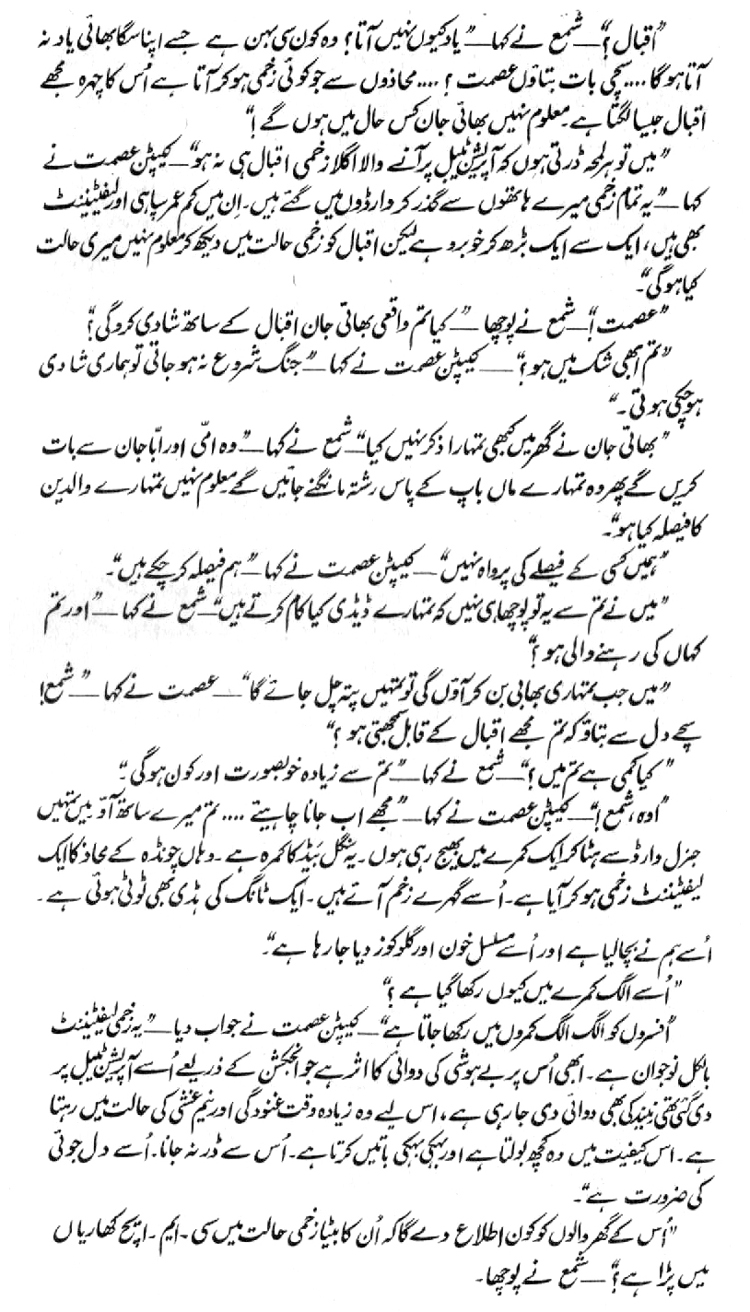 ”اقبال؟“ — شمع نے کہا — ”یاد کیوں نہیں آتا؟ وہ کون سی بہن ہے جسے اپنا سگا بھائی یاد نہ
آتا ہوگا.... سچی بات بتاؤں عصمت؟.... محاذوں سے جو کوئی زخمی ہو کر آتا ہے اُس کا چہرہ مجھے
اقبال جیسا لگتا ہے۔ معلوم نہیں بھائی جان کس حال میں ہوں گے!“
”میں تو ہر لمحہ ڈرتی ہوں کہ آپریشن ٹیبل پر آنے والا اگلا زخمی اقبال ہی نہ ہو“ — کیپٹن عصمت نے
کہا — ”یہ تمام زخمی میرے ہاتھوں سے گذر کر وارڈوں میں گئے ہیں۔ اِن میں کم عمر سپاہی اور لیفٹیننٹ
بھی ہیں، ایک سے ایک بڑھ کر خوبرو ہے لیکن اقبال کو زخمی حالت میں دیکھ کر معلوم نہیں میری حالت
کیا ہوگی“۔
”عصمت!“ — شمع نے پوچھا — ”کیا تم واقعی بھائی جان اقبال کے ساتھ شادی کرو گی؟“
”تم ابھی شک میں ہو؟“ — کیپٹن عصمت نے کہا — ”جنگ شروع نہ ہو جاتی تو ہماری شادی
ہو چکی ہوتی۔“
”بھائی جان نے گھر میں کبھی تمہارا ذکر نہیں کیا“ — شمع نے کہا — ”وہ امّی اور ابّا جان سے بات
کریں گے پھر وہ تمہارے ماں باپ کے پاس رشتہ مانگنے جائیں گے معلوم نہیں تمہارے والدین
کا فیصلہ کیا ہو“۔
”ہمیں کسی کے فیصلے کی پرواہ نہیں“ — کیپٹن عصمت نے کہا — ”ہم فیصلہ کر چکے ہیں“۔
”میں نے تم سے یہ تو پوچھا ہی نہیں کہ تمہارے ڈیڈی کیا کام کرتے ہیں“ — شمع نے کہا — ”اور تم
کہاں کی رہنے والی ہو؟“
”میں جب تمہاری بھابی بن کر آؤں گی تو تمہیں پتہ چل جائے گا“ — عصمت نے کہا — ”شمع!
سچے دل سے بتاؤ کہ تم مجھے اقبال کے قابل سمجھتی ہو؟“
”کیا کمی ہے تم میں؟“ — شمع نے کہا — ”تم سے زیادہ خوبصورت اور کون ہوگی“۔
”اوہ، شمع!“ — کیپٹن عصمت نے کہا — ”مجھے اب جانا چاہیئے.... تم میرے ساتھ آؤ میں تمہیں
جنرل وارڈ سے ہٹا کر ایک کمرے میں بھیج رہی ہوں۔ یہ سنگل بَیڈ کا کمرہ ہے۔ وہاں چونڈہ کے محاذ کا ایک
لیفٹیننٹ زخمی ہو کر آیا ہے۔ اُسے گہرے زخم آئے ہیں۔ ایک ٹانگ کی ہڈی بھی ٹوٹی ہوئی ہے۔
اُسے ہم نے بچا لیا ہے اور اُسے مسلسل خون اور گلوکوز دیا جا رہا ہے“۔
”اُسے الگ کمرے میں کیوں رکھا گیا ہے؟“
”افسروں کو الگ الگ کمروں میں رکھا جاتا ہے“ — کیپٹن عصمت نے جواب دیا — ”یہ زخمی لیفٹیننٹ
بالکل نوجوان ہے۔ ابھی اُس پر بے ہوشی کی دوائی کا اثر ہے جو انجکشن کے ذریعے اُسے آپریشن ٹیبل پر
دی گئی تھی نیند کی بھی دوائی دی جا رہی ہے، اس لیے وہ زیادہ وقت غنودگی اور نیم غشی کی حالت میں رہتا
ہے۔ اس کیفیت میں وہ کچھ بولتا ہے اور بہکی بہکی باتیں کرتا ہے۔ اُس سے ڈر نہ جانا۔ اُسے دل جوئی
کی ضرورت ہے“۔
”اُس کے گھر والوں کو کون اطلاع دے گا کہ اُن کا بیٹا زخمی حالت میں سی۔ ایم۔ ایچ کھاریاں
میں پڑا ہے؟“ — شمع نے پوچھا۔